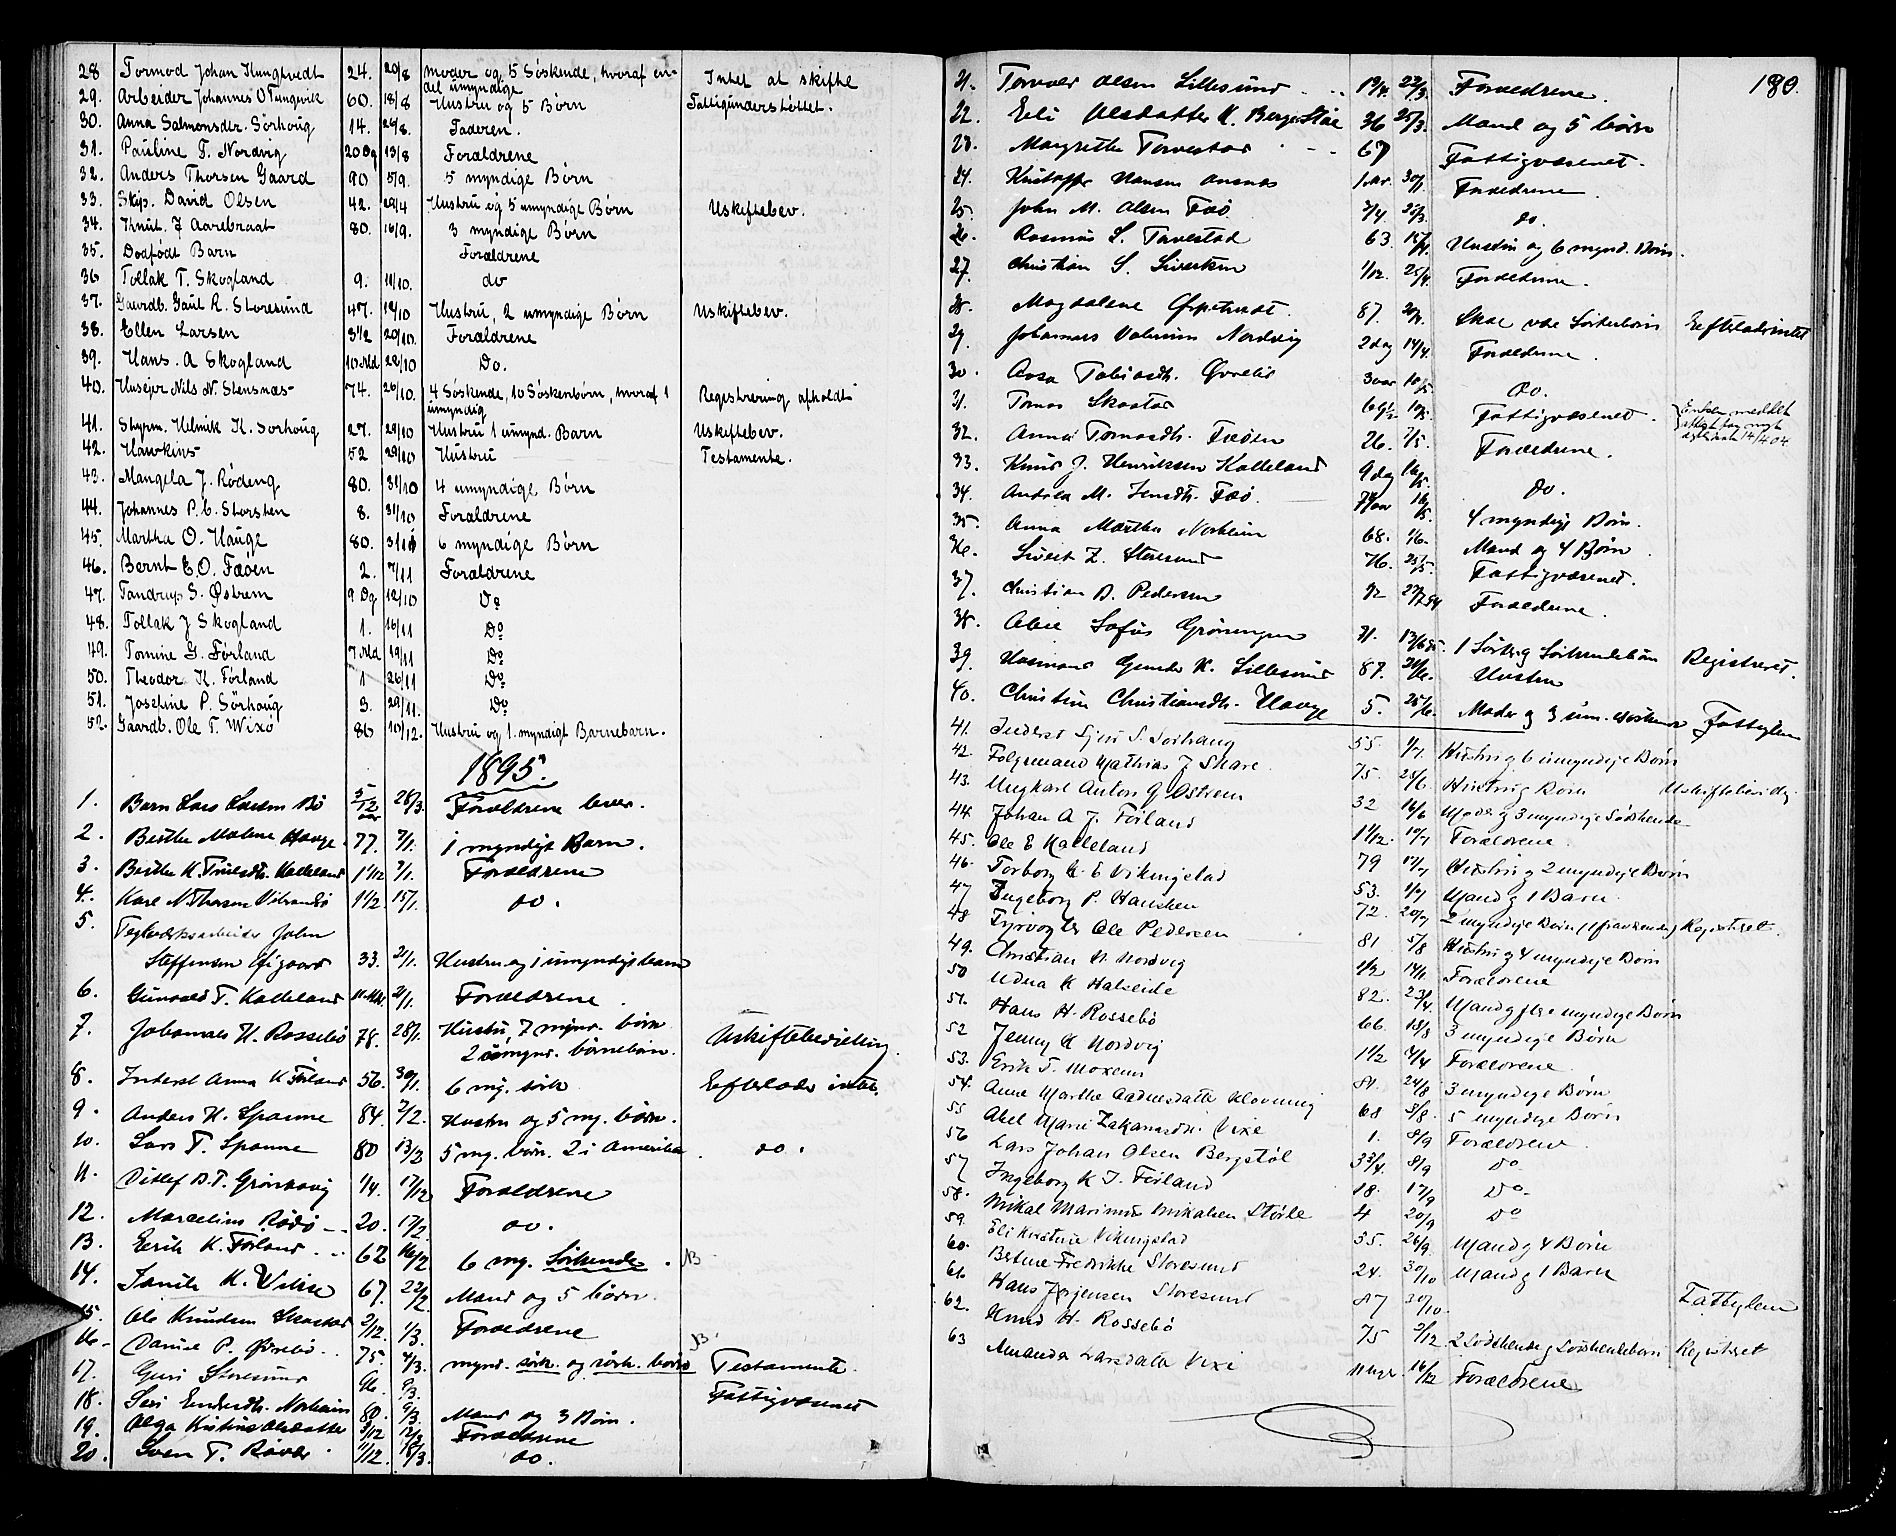 28 Tormod Johan Kungtvedt 24. 20/8 moder og 5 Søskende, hvoraf en- Intet at skifte
del umyndige
29. Arbeider Johannes O Tungevik 60. 18/8 Hustru og 5 Børn Fattigunderstøttet.
30. Anna Salmonsdtr. Sørhoug 14. 29/8. Faderen.
31. Pauline T. Nordvig 20 Dg 13/8 Forældrene
32. Anders Thorsen Gaard 90 5/9. 5 myndige Børn
33. Skip. David Olsen 42. 29/4 Hustru og 5 umyndige Børn Uskiftebev.
34. Knut. J Aarebraat 80. 16/9. 3 myndige Børn
35. Dødfødt Barn Forældrene
36 Tollak T. Skogland 9. 11/10. do
37. Gaardb. Gaut R. Storesund 47. 19/10 Hustru, 2 umyndige Børn Uskiftebev.
38. Ellen Larsen 3 1/2 20/10. Forældrene
39. Hans. A Skogland 10 Md 22/10 Do.
40. Husejer Nils N. Stensnæs 74. 26/10. 4 Søskende, 10 Søskenbørn, hvoraf 1 Registrering afholdt
umyndig
41. Styrm. Helmik K. Sørhoug 27. 29/10 Hustru 1 umynd. Barn Uskiftebev.
42. Hawkins 52 29/10 Hustru Testamente.
43. Mangela J. Røding 80. 31/10 4 umyndige Børn
44. Johannes P. C. Storsten 8. 31/10 Forældrene
45. Martha O. Hauge 80. 3/11 6 myndige Børn
46. Bernt E. O. Fæøen 2. 7/11 Forældrene
47. Tandrup S. Østrem 9 Dg 12/10 Do
48. Tollak J Skogland 1. 16/11 Do
49. Tomine G. Førland 7 Md 19/11 Do
50. Theodor K. Førland 1 26/11 Do
51. Josefine P. Sørhoug 3. 29/11. Do
52. Gaardb. Ole T. Wixø 86 10/12. Hustru og 1 myndigt Barnebarn.
1895.
1. Barn Lars Larsen Bø 5/12 aar 28/3. Forældrene lever.
2. Berthe Malene Hauge 77. 7/1. 1 myndigt Barn.
3. Berthe K. Kalleland 1 1/12 7/1. Forældrene
4. Karl N. Thorsen Vibrandø 1 1/2 15/1. do.
5. Teglværksarbeider John
Steffensen 33. 21/1. Hustru og 1 umyndigt barn
6. Gunvald T. Kalleland 11 Md. 21/1. Forældrene
7. Johannes H. Rossebø 78. 28/1. Hustru, 7 mynd. børn Uskiftebevilling.
2 umynd. børnebørn.
8. Inderst Anna K Førland 56. 30/1. 6 mg. søsk Efterlader intet.
9. Anders H. Spanne 84. 7/2. Hustru og 5 mg. børn.
10. Lars T. Spanne 80 13/2 5 mg. børn. 2 i Amerika. do.
11. Ditlef B. T. Grønhaug 1/4. 17/12 Forældrene
12. Marcelius Rødø 20. 17/2. do.
13. Eerik K. Førland 62 16/2 6 mg. Søskende. NB
14. K. Velde 67. 22/2. Mand og 5 børn.
15. Ole Knudsen Skastad 2/12. 1/3. Forældrene
16. Daniel P. Øvrebø. 75. 4/3. mynd. søsk. og søsk. børn NB Testamente.
17. Guri Storesund 96. 9/3. Fattigvæsenet
18. Siri Endresdtr. Norheim 80. 9/3. Mand og 3 Børn.
19. Olga Kristine Olsdatter 3/12 12/3 Forældrene
20. Sven T. Røvær 11/12. 18/3. do.
180.
21. Torvald Olsen Lillesund 22/3. Forældrene.
22. Eli Olsdatter K. Bergestøle 36 25/3. Mand og 5 børn
23. Margrethe Torvestad 67 Fattigvæsenet.
24. Kristoffer Hansen 1 ar. 30/1. Forældrene
25. John M. Olsen Fæø 3/4 25/3. do.
26. Rasmus S. Torvestad 63. 15/4. Hustru og 6 mynd. Børn.
27. Christian S. Sivertsen 1/12. 25/4. Forældrene.
28. Magdalene 87. 20/4. Efterlader intet
29. Johannes Valerius Nordvig 2 dag 14/4. Forældrene.
30. Aasa Tobiasdtr. Øvrebø 3 aar 10/5. do.
31. Tomas Skastad 69 1/2 10/5. Fattigvæsenet.
32. Anna Tomasdtr. Fæøen 26. 7/5. Forældrene.
33. Knud J. Henriksen Kalleland 9 dag 16/5. do.
34. Andrea M. Jensdtr. Fæø. 74 aar 16/5. 4 myndige Børn.
35. Anna Martha Norheim 68. 1/6. Mand og 4 Børn
36. Sivert Z. Storesund 76. 25/5. Fattigvæsenet.
37. Christian B. Pedersen 1/2 27/7 94 Forældrene.
38. Abel Sofus Grøningen 71. 13/6 95. 1 Søsk og Søskendebørn Registreret.
39. Gunder K. Lillesund 87. Hustru
40. Christine Christiansdtr. Hauge 5. 25/6. Moder og 3 um. søskende Fattiglem
41. Inderst Sjur S. Sørhaug 55. 1/7 Hustru og 6 umyndige Børn
42. Følgemand Mathias J Skare. 75. 25/6. Hustru og Børn Uskiftebevillg.
43. Ungkarl Anton G Østrem 32 16/6 Moder og 3 myndige Søskende
44. Johan A. J. Førland 1 1/12. 10/7 Forældrene.
45. Ole E Kalleland 79 17/7 Hustru og 2 myndige Børn
46. Torborg K. E Vikingstad 53. 1/7 Mand og 1 Barn.
47 Ingeborg P. Hansken 72. 20/7 2 myndige Børn (1 fraværende) Registreret.
48 Fyrvogter Ole Pedersen 81 5/8 Hustru og 4 myndige Børn
49. Christian H Nordvig 1/2 14/1 Forældrene
50 Udna K Halseide 82. 23/4 Mand og flere myndige Børn
51. Hans H. Rossebø 66. 18/8 3 myndige Børn
52 Jenny K Nordvig 1 1/2 4/4 Forældrene.
53. Erik T. Moxenes 81. 24/8 3 myndige Børn
54. Anne Marthe Aadnesdatter Klovning 68 3/8. 5 myndige Børn
55 Abel Marie Zakariasdtr. Vixe 1. 8/9 Forældrene
56 Lars Johan Olsen Bergstøl 3 3/4. 8/9 do
57 Ingeborg K J. Førland 18. 17/9 Do
58. Mikal Marinus Mikalsen Støle 4 20/9 Do
59. Eli Kristine Vikingstad 35. 26/9 Mand og 4 Børn
60. Betine Fredrikke Storesund 24. 30/10 Mand og 1 Barn
61. Hans Jørgensen Storesund 87 30/10. Fattiglem
62. Knud H. Rossebø 75 2/12 2 Søskende og Søskendebørn Registreret
63 Amanda Larsdatter Vixe 11 Uger 16/12 Forældrene